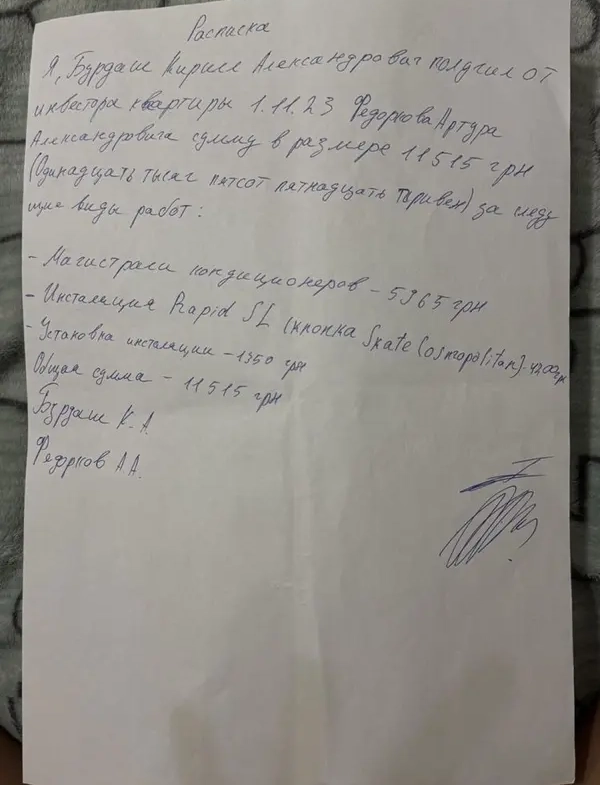 Расписка
Я, Бурдаш Кирилл Александрович получил от
инвестора квартиры 1.11.23 Федоркова Артура
Александровича сумму в размере 11515 грн
(Одинадцать тысяч пятсот пятнадцать гривен) за следу
ющие виды работ:
- Магистрали кондиционеров - 5965 грн
- Инсталяция Rapid SL (кнопка Skate Cosmopolitan) - 4200 грн
- Установка инсталяции - 1350 грн
Общая сумма - 11515 грн
Бурдаш К.А.
Федорков А А.